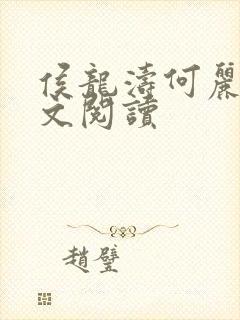 侯龍濤何麗
文閱讀
趙壁